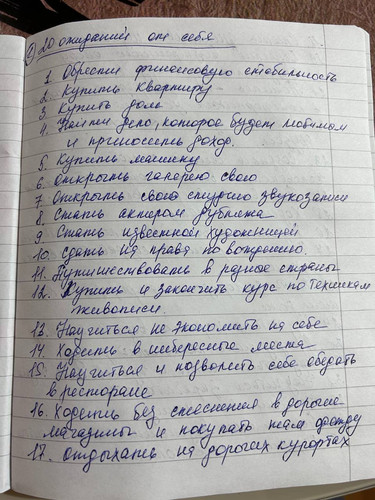 ② 20 ожиданий от себя
1. Обрести финансовую стабильность
2. Купить квартиру
3. Купить дом
4. Найти дело, которое будет любимым
и приносить доход.
5. Купить машину
6. Открыть галерею свою
7. Открыть свою студию звукозаписи
8. Стать актером дубляжа
9. Стать известной художницей
10. Сдать на права по вождению
11. Путишествовать в разные страны
12. Купить и закончить курс по техникам
живописи.
13. Научиться не экономить на себе
14. Ходить в интересные места
15. Научиться и позволить себе обедать
в ресторане
16. Ходить без стеснения в дорогие
магазины и покупать там одежду
17. Отдыхать на дорогих курортах